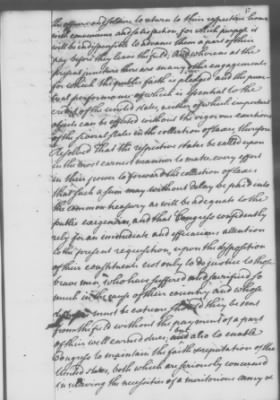 the officers and soldiers to return to their respective homes
with convenience and satisfaction, for which purpose it
will be indispensible to advance them a part of their
pay before they leave the field, And whereas at the
present juncture there are many other engagements
for which the public faith is pledged and the punc
tual performance of which is essential to the
credit of the united states, neither of which important
objects can be effected without the vigorous exertions
of the several states in the collection of taxes; therefore
Resolved That the respective states be called upon
in the most earnest manner to make every effort
in their power to forward the collection of taxes
that such a sum may without delay be paid into
the common treasury as will be adequate to the
public exigencies, and that Congress confidently
rely for an immediate and efficacious attention
to the present requisition, upon the disposition
of their constituents not only to do justice to those
brave men, who have suffered and sacrificed so
much in the cause of their country, and whose
must be extreme should they be sent
from the field without the payment of a part
of their well earned dues; but also to enable
Congress to maintain the faith & reputation of the
United states, both which are seriously concerned
in relieving the necessities of a meritorious army &